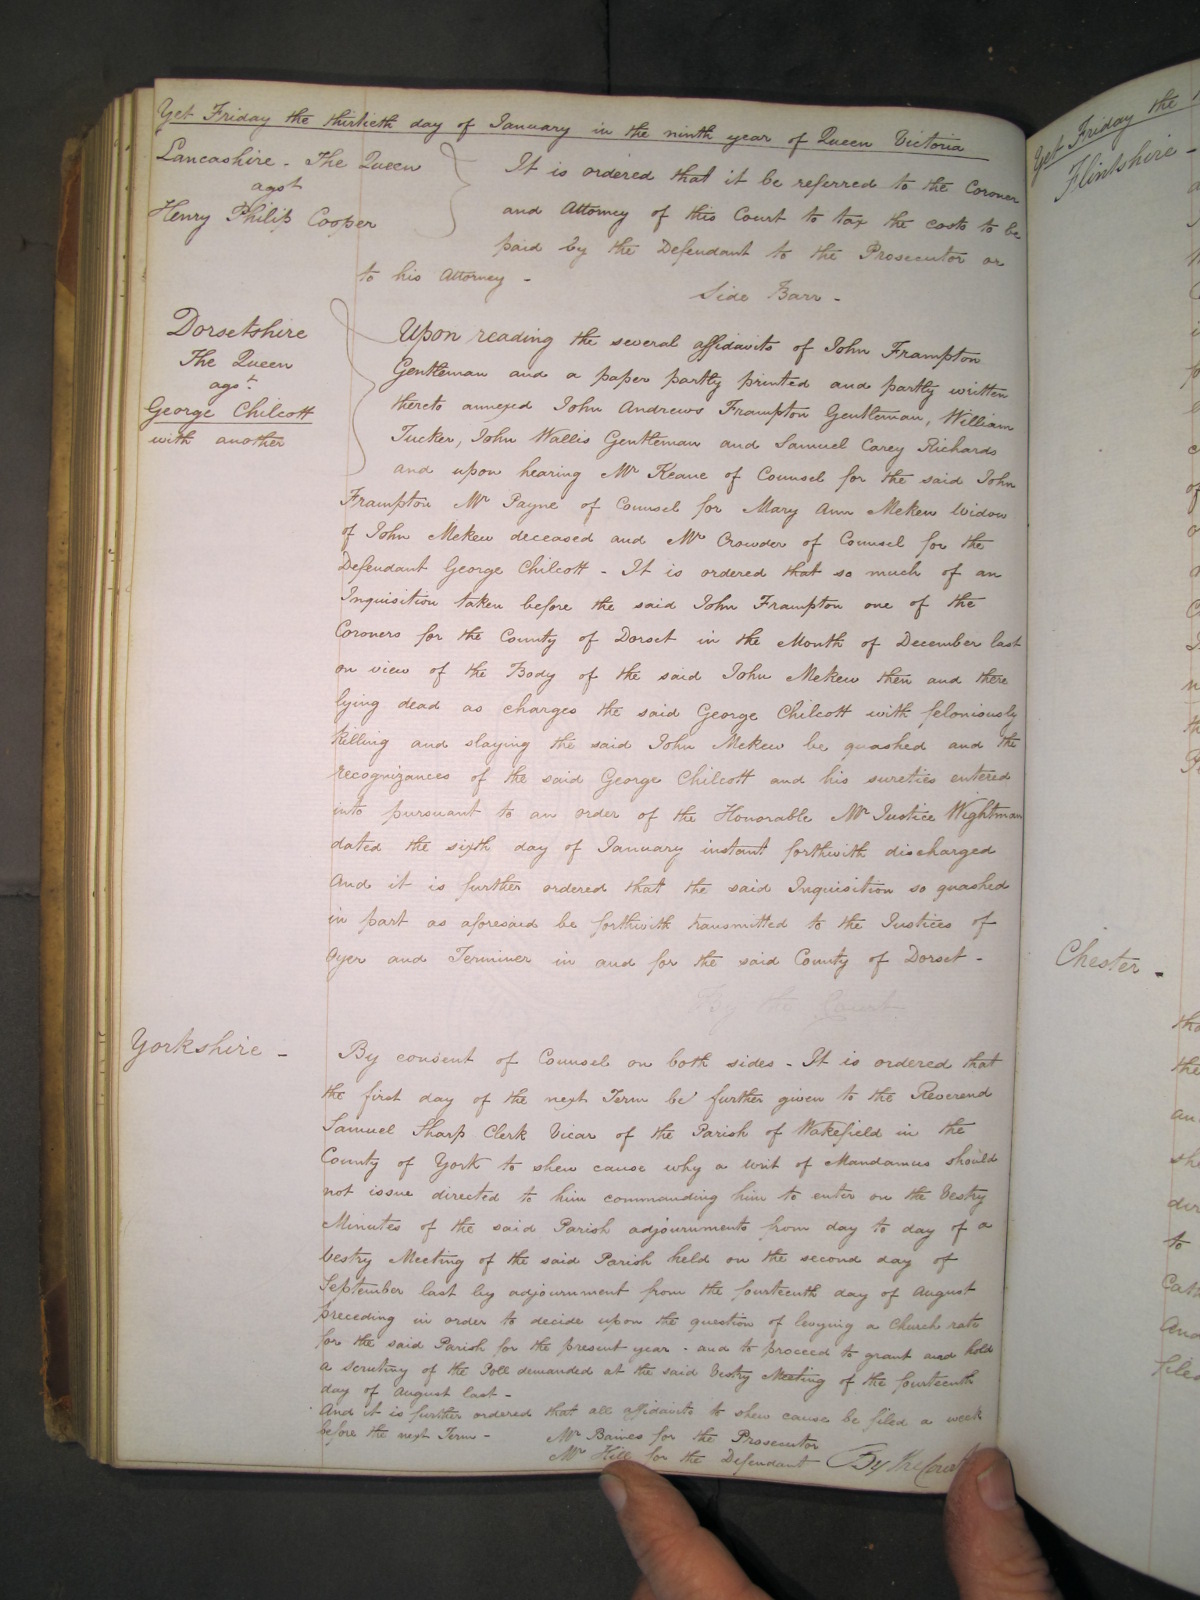 Yet Friday the thirtieth day of January in the ninth year of Queen Victoria
Lancashire - The Queen
agst
Henry Philip Cooper
It is ordered that it be referred to the Coroner
and Attorney of this Court to tax the costs to be
paid by the Defendant to the Prosecutor or
to his Attorney -
Side Barr -
Dorsetshire
The Queen
agst.
George Chilcott
with another
Upon reading the several affidavits of John Frampton
Gentleman and a paper partly printed and partly written
thereto annexed John Andrews Frampton Gentleman, William
Tucker, John Wallis Gentleman and Samuel Carey Richards
and upon hearing Mr Keane of Counsel for the said John
Frampton Mr Payne of Counsel for Mary Ann Mekew Widow
of John Mekew deceased and Mr Crowder of Counsel for the
Defendant George Chilcott - It is ordered that so much of an
Inquisition taken before the said John Frampton one of the
Coroners for the County of Dorset in the Month of December last
on view of the Body of the said John Mekew then and there
lying dead as charges the said George Chilcott with feloniously
killing and slaying the said John Mekew be quashed and the
recognizances of the said George Chilcott and his sureties entered
into pursuant to an order of the Honorable Mr Justice Wightman
dated the sixth day of January instant forthwith discharged
And it is further ordered that the said Inquisition so quashed
in part as aforesaid be forthwith transmitted to the Justices of
Oyer and Terminer in and for the said County of Dorset -
By the Court
Yorkshire -
By consent of Counsel on both sides - It is ordered that
the first day of the next Term be further given to the Reverend
Samuel Sharp Clerk Vicar of the Parish of Wakefield in the
County of York to shew cause why a Writ of Mandamus should
not issue directed to him commanding him to enter on the Vestry
Minutes of the said Parish adjournments from day to day of a
Vestry Meeting of the said Parish held on the second day of
September last by adjournment from the fourteenth day of August
preceding in order to decide upon the question of levying a Church rate
for the said Parish for the present year - and to proceed to grant and hold
a scrutiny of the Poll demanded at the said Vestry Meeting of the fourteenth
day of August last -
And it is further ordered that all affidavits to shew cause be filed a week
before the next Term -
Mr Baines for the Prosecutor
Mr Hill for the Defendant
By the Court
Yet Friday the
Flintshire -
Chester -